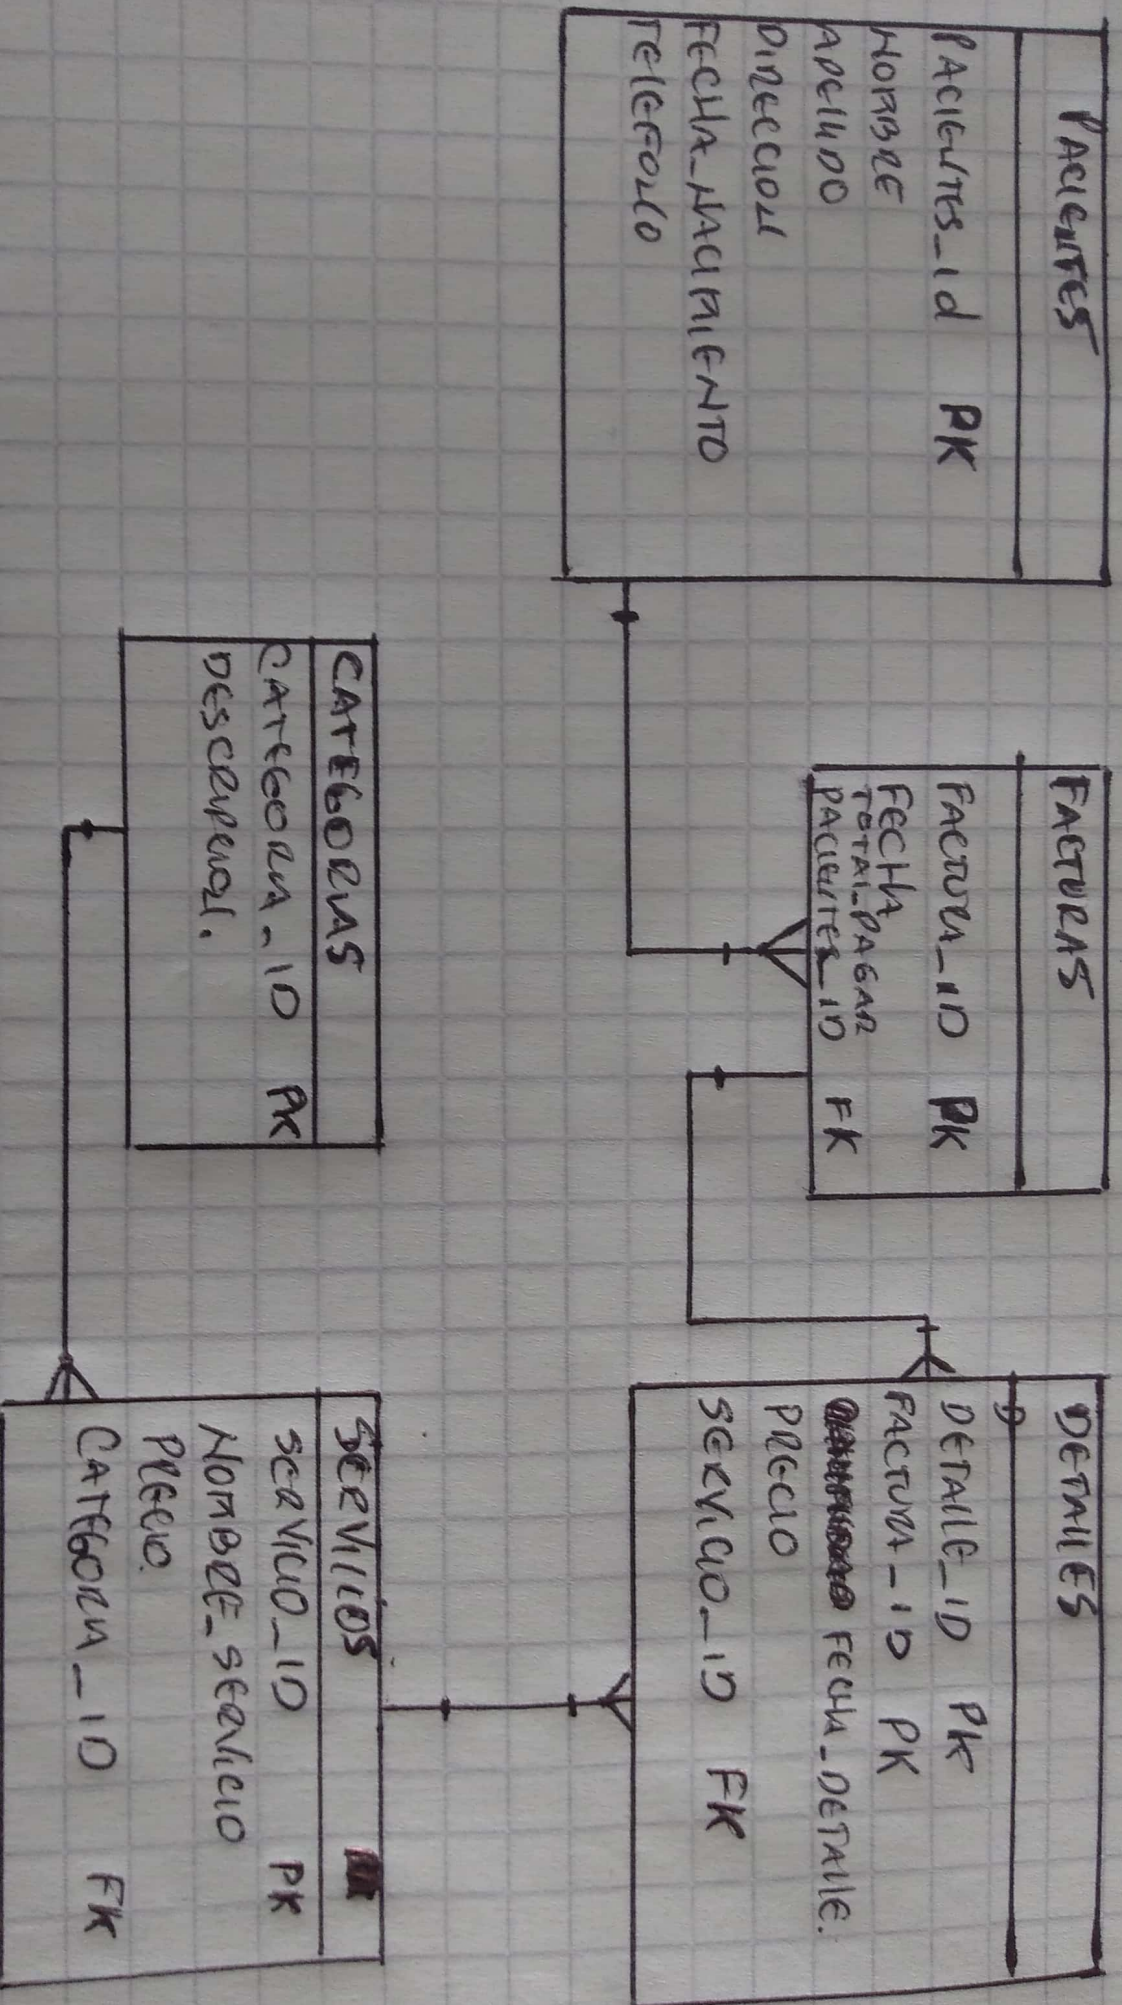 PACIENTES
PACIENTES_id PK
NOMBRE
APELLIDO
DIRECCION
FECHA_NACIMIENTO
TELEFONO
FACTURAS
FACTURA_ID PK
FECHA
TOTAL_PAGAR
PACIENTES_ID FK
DETALLES
DETALLE_ID PK
FACTURA_ID PK
FECHA_DETALLE.
PRECIO
SERVICIO_ID FK
CATEGORIAS
CATEGORIA_ID PK
DESCRIPCION.
SERVICIOS
SERVICIO_ID PK
NOMBRE_SERVICIO
PRECIO.
CATEGORIA_ID FK